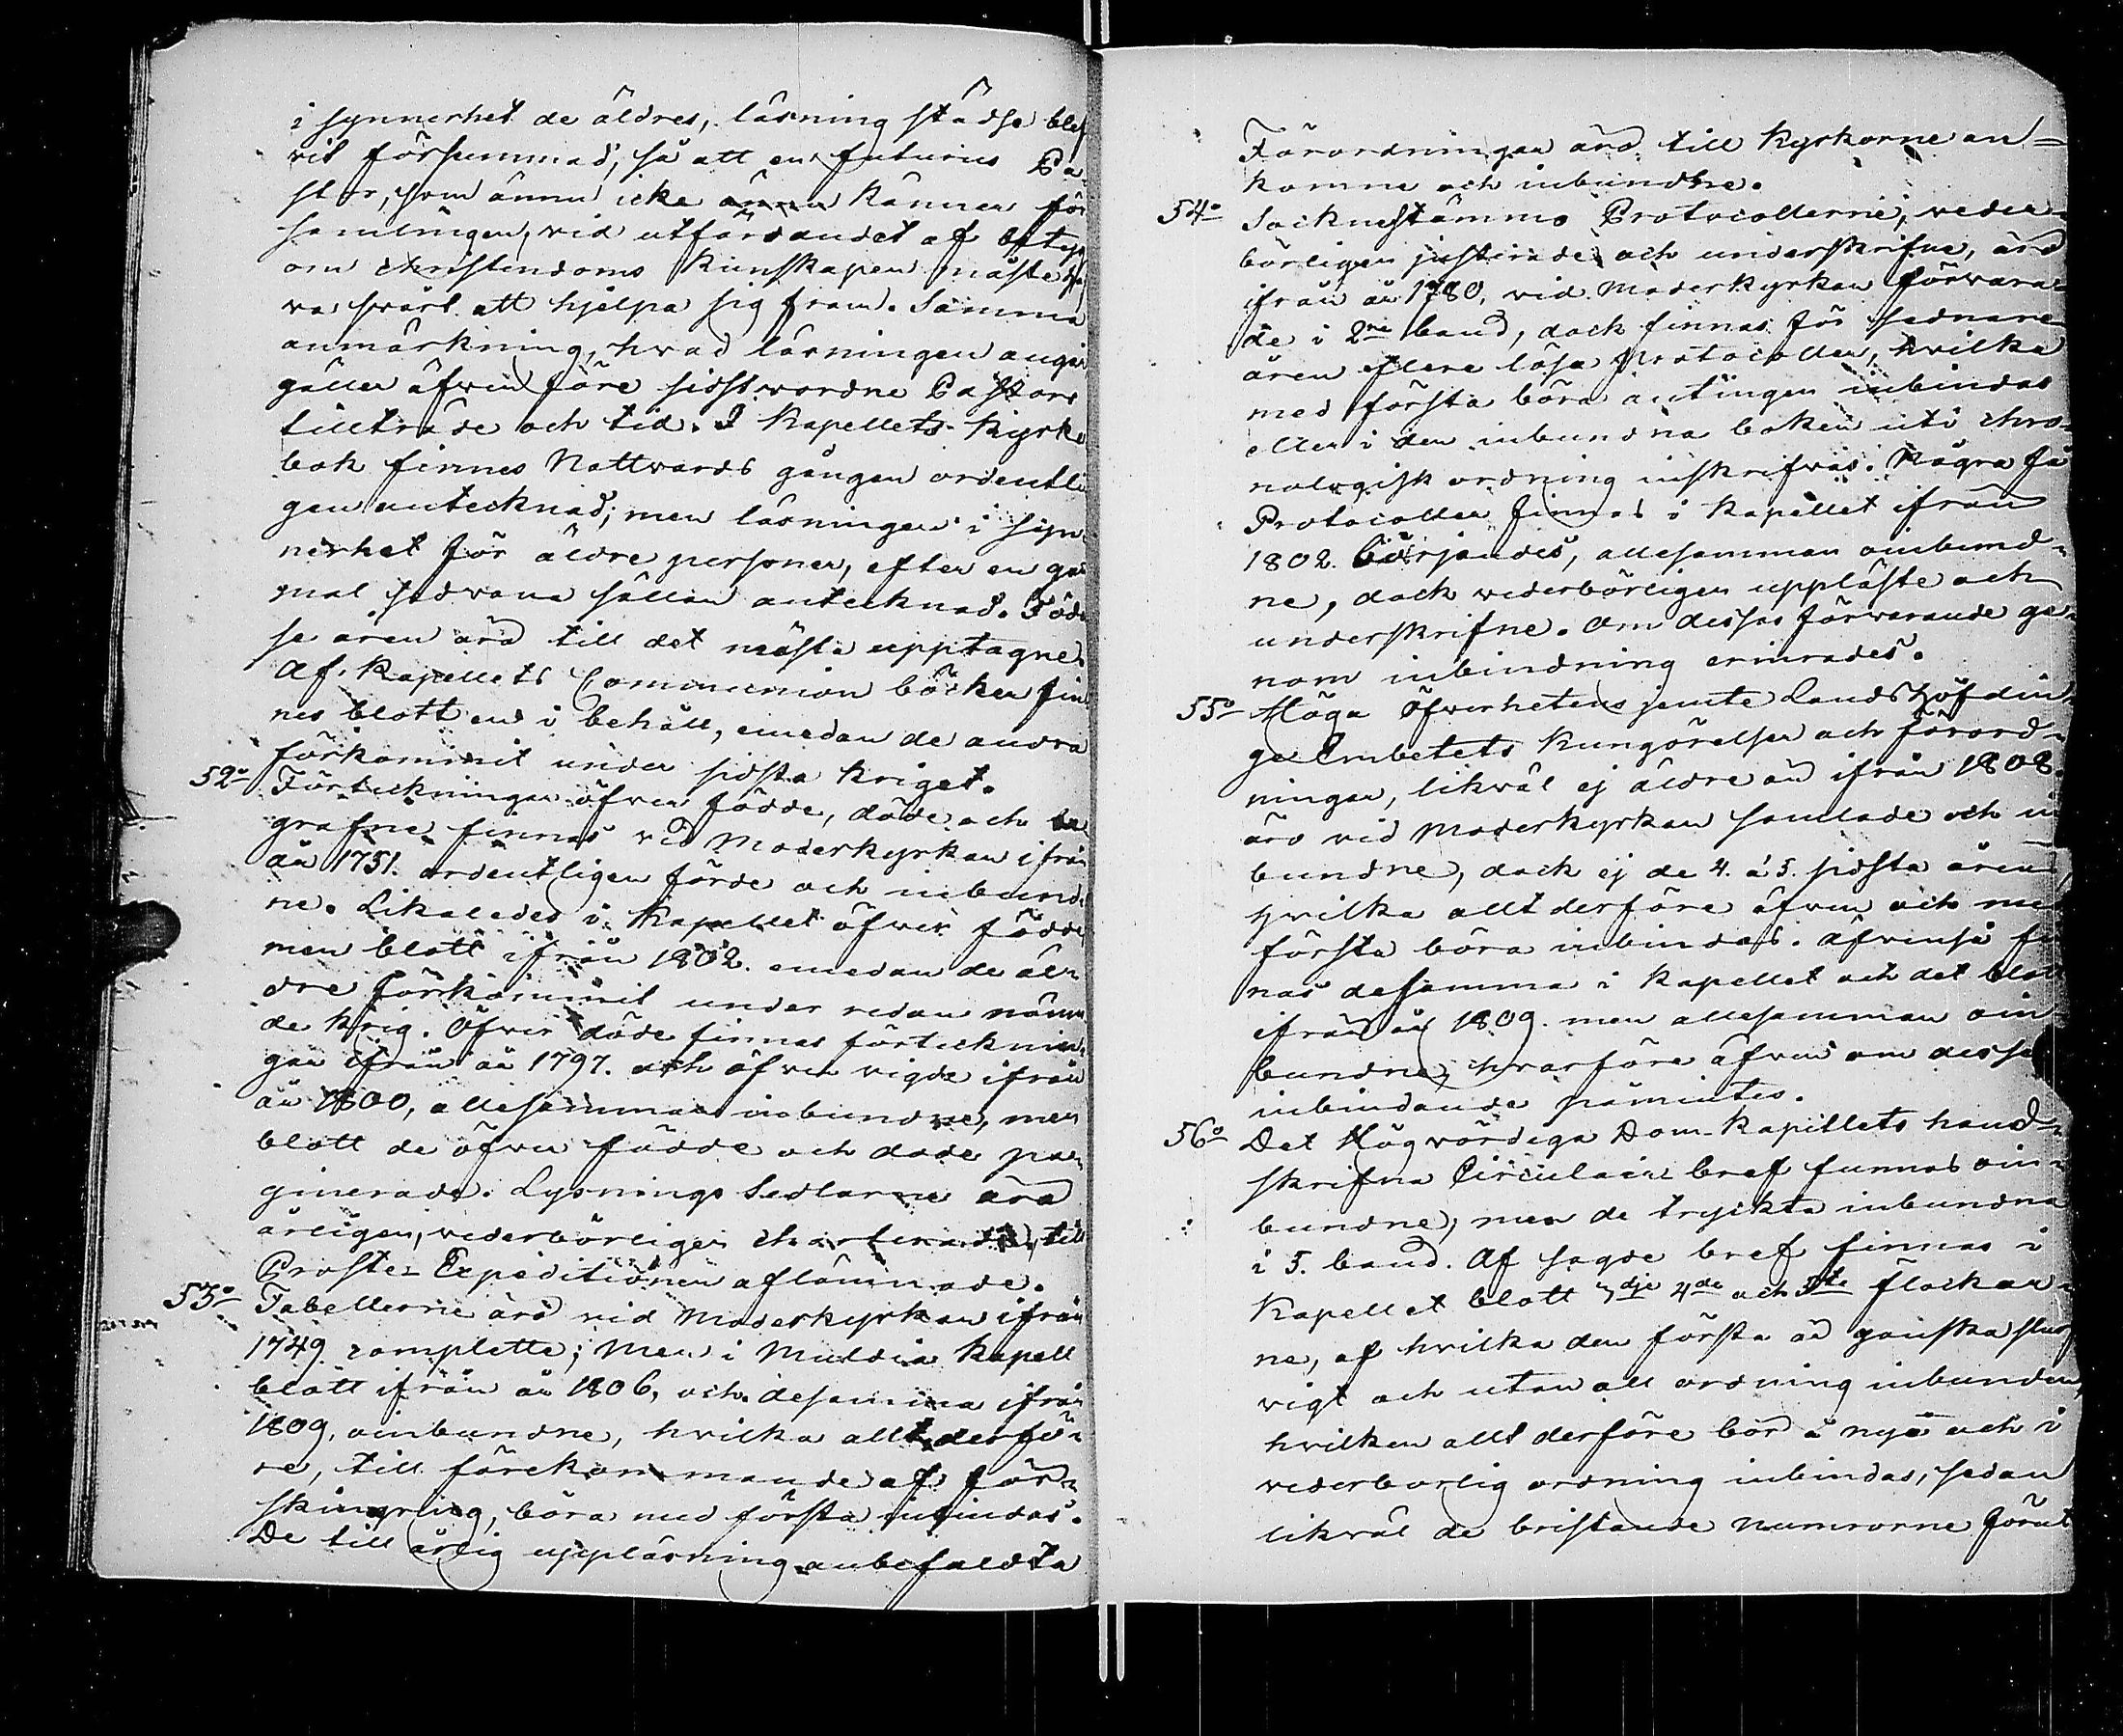 i synnerhet de äldres, läsning städse blef
vit försummad, så att en futurus Pa-
stor, som ännu icke ännu känner för
samlingen, vid utfärdandet af betyg
om christendoms kunskapen måste ha
va svårt att hjelpa sig fram. Samma
anmärkning, hvad läsningen angår
gäller äfven före sidstwordne Pastors
tillträde och tid. I Kapellets Kyrko
bok finnes Nattvards gången ordentli
gen antecknad; men läsningen i syn
nerhet för äldre personer, efter en gam
mal sedvana sällan antecknad. Föde
se åren äro till det mästa upptagne.
Af Kapellets Communion böcker fin
nes blott en i behåll, emedan de andra
förkommit under sidsta kriget.
52o Förteckningar öfver födde, döde och be
grafne finnas vid Moderkyrkan ifrån
år 1751. ordentligen förde och inbund
ne. Likaledes i Kapellet öfver födde
men blott ifrån 1802. emedan de äl-
dre förkommit under redan nämn
de krig. Öfver döde finnas förtecknin-
gar ifrån år 1797. och öfver vigde ifrån
år 1800, allesamman inbundne, men
blott de öfver födde och döde pa-
ginerade. Lysnings Sedlarne äro
årligen, vederbörligen charterade, till
Proste-Expeditionen aflämnade.
53o Tabellerne äro vid Moderkyrkan ifrån
1749 complette; men i Muldia Kapell
blott ifrån år 1806, och desamma ifrån
1809, oinbundne, hvilka allt derfö-
re, till förekommande af för-
skingring, böra med första inbindas.
De till årlig uppläsning anbefaldta
Förordningar äro till Kyrkorne an=
komne och inbundne.
54o Socknestämmo Protocollerne, veder-
börligen justerade och underskrifne, äro
ifrån år 1780, vid Moderkyrkan förvara-
de i 2ne band, dock finnas för sednare
åren flere lösa protocoller, hvilka
med första böra antingen inbindas
eller i den inbundna boken uti chro-
nologisk ordning inskrifvas. Några få
Protocoller finnas i Kapellet ifrån
1802. börjandes, allesamman oinbund-
ne, dock vederbörligen uppläste och
underskrifne. Om dessas förvarande ge-
nom inbindning erinrades.
55o Höga Öfverhetens jemte Landshöfdin
ge Embetets Kungörelser och förord-
ningar, likväl ej äldre än ifrån 1808.
äro vid Moderkyrkan samlade och in
bundne, dock ej de 4. à 5. sidsta åren,
hvilka allt derföre äfven och med
första böra inbindas. Äfvenså fin
nas desamma i Kapellet och det blott
ifrån år 1809. men allesamman oin
bundne, hvarföre äfven om dessas
inbindande påmintes.
56o Det Högvördiga Dom-Kapitlets hand-
skrifna Circulair bref funnos oin-
bundne, men de tryckta inbundna
i 5. band. Af sagde bref finnas i
Kapellet blott 3dje 4de och 5te flockar-
ne, af hvilka den första är ganska slur
vigt och utan all ordning inbunden,
hvilken allt derföre bör å nyo och i
vederbörlig ordning inbindas, sedan
likväl de bristande numrorne förut